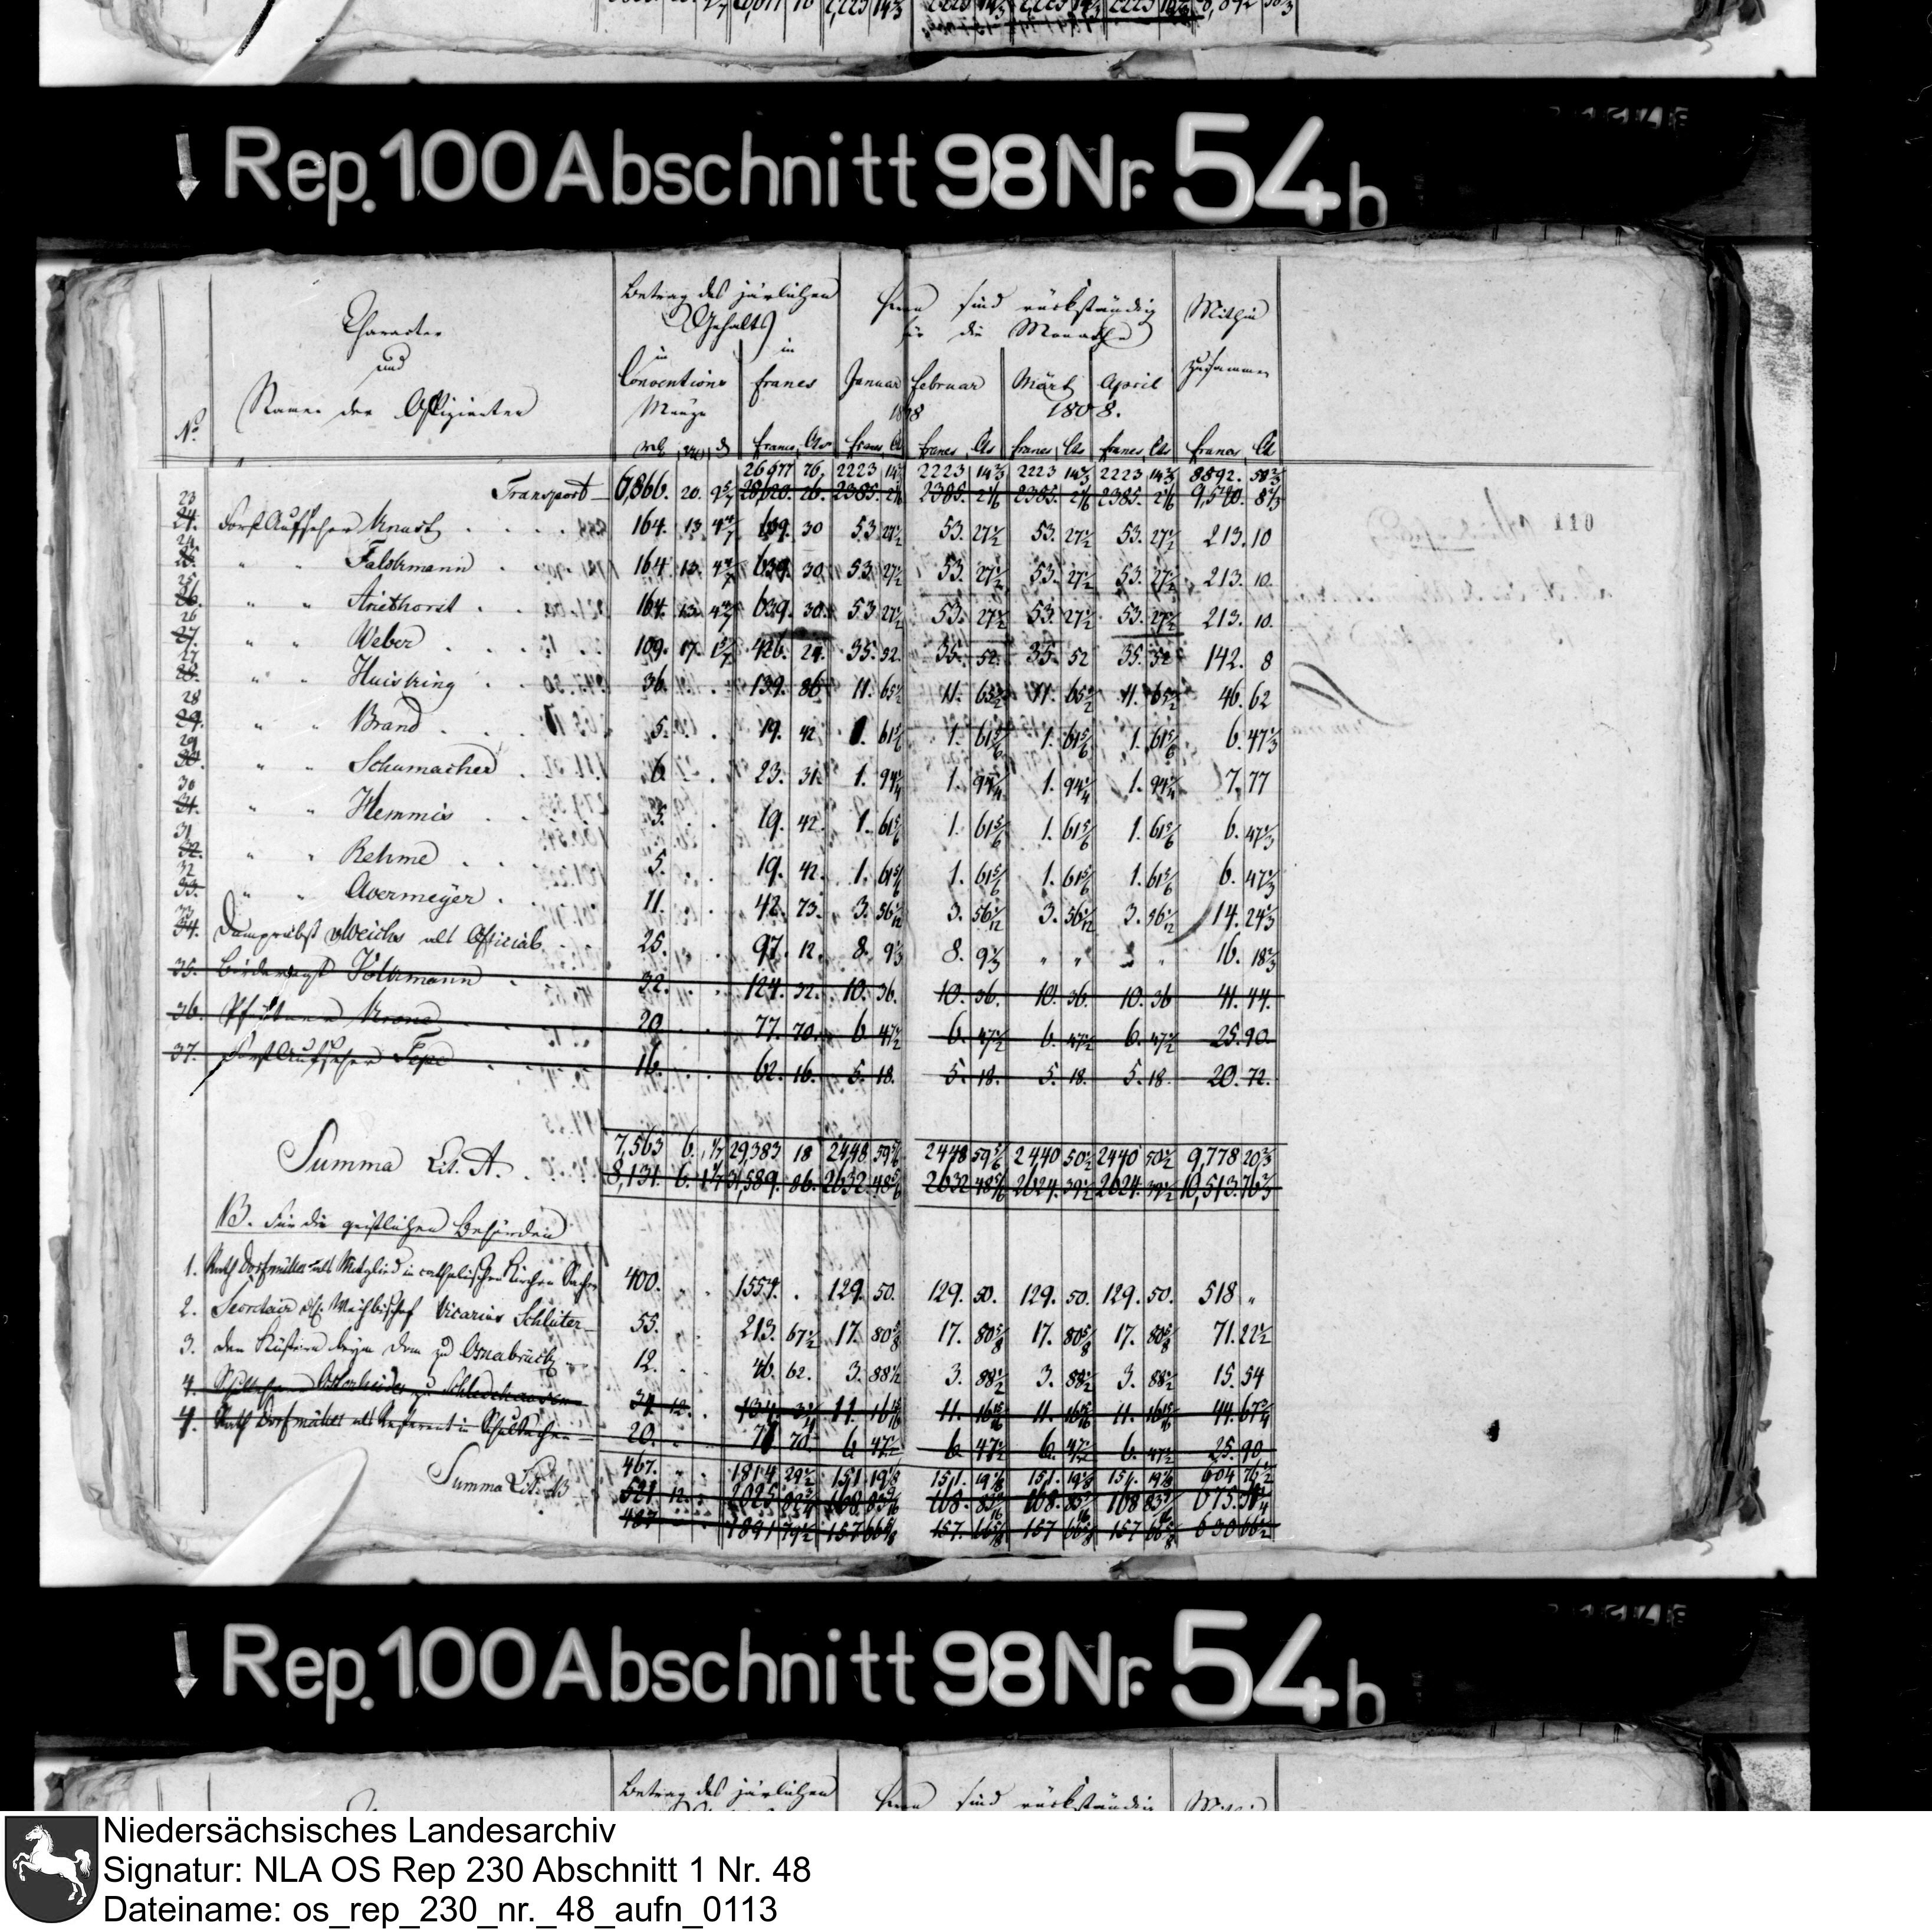 ↓ Rep. 100 Abschnitt 98 Nr. 54 b
110
Betrag des järlichen Gehalts
Ihnen sind rückständig für die Monathe
Mithin zusammen
No. Character und Namen der Offizianten
in Conventions Münze
in francs
Januar Februar 1808
Märtz April 1808.
francs Cts francs Cts francs Cts francs Cts francs Cts francs Cts
26677 76. 2223 14 2/3 2223 14 2/3 2223 14 2/3 2223 14 2/3 8892. 58 2/3
Transport 6,866. 20. 28620. 26. 2385. 2 1/6 2385. 2 1/6 2385. 2 1/6 2385. 2 1/6 9,540. 8 2/3
23 24. Forst Aufseher Knust 164. 13 4 4/7 639. 30 53 27 1/2 53. 27 1/2 53. 27 1/2 53. 27 1/2 213. 10
24 25. " " 164. 13. 4 4/7 639. 30. 53. 27 1/2 53. 27 1/2 53. 27 1/2 53. 27 1/2 213. 10.
25 26. " " Ariethorst 164. 13 4 4/7 639. 30. 53 27 1/2 53. 27 1/2 53. 27 1/2 53. 27 1/2 213. 10.
26 27. " " Weber 109. 17. 1 5/7 426. 24. 35. 52. 35. 52. 35. 52 35. 52 142. 8
27 28. " " Huisking 36. 139. 86 11. 65 1/2 11. 65 1/2 11. 65 1/2 11. 65 1/2 46. 62
28 29. " " Brand 5. 19. 42 1. 61 5/6 1. 61 5/6 1. 61 5/6 1. 61 5/6 6. 47 1/3
29 30. " " Schumacher 6. 23. 31 1. 94 1/4 1. 94 1/4 1. 94 1/4 1. 94 1/4 7. 77
30 31. " " Hemmis 5. 19. 42. 1. 61 5/6 1. 61 5/6 1. 61 5/6 1. 61 5/6 6. 47 1/3
31 32. " " Rehme 5. 19. 42 1. 61 5/6 1. 61 5/6 1. 61 5/6 1. 61 5/6 6. 47 1/3
32 33. " " Avermeyer 11. 42. 73. 3. 56 1/12 3. 56 1/12 3. 56 1/12 3. 56 1/12 14. 24 1/3
33 34. Domprobst vWeichs als Official 25. 97. 12. 8. 9 1/3 8. 9 1/3 " " " " 16. 18 2/3
35. Volkmann 32. 124. 32. 10. 36. 10. 36. 10. 36. 10. 36 41. 44.
36. Krone 20. 77. 70. 6. 47 1/2 6. 47 1/2 6. 47 1/2 6. 47 1/2 25. 90.
37. Forst Aufseher Tepe 16. 62. 16. 5. 18. 5. 18. 5. 18. 5. 18. 20. 72.
7,563 6. 1/7 29,383 18 2448. 59 5/6 2448 59 5/6 2440 50 1/2 2440 50 1/2 9,778 20 2/3
Summa Lit. A. 8,131. 6. 31,589. 86. 2632. 48 5/6 2632 48 5/6 2624. 39 1/2 2624. 39 1/2 10,513. 76 2/3
B. Für die geistlichen Behörden
1. Rath Dorfmüller als Mitglied in catholischen Kirchen Sachen 400. 1554. 129. 50. 129. 50. 129. 50. 129. 50. 518 "
2. Secretair Weihbischof Vicarius Schlüter 55. 213. 67 1/2 17. 80 5/8 17. 80 5/8 17. 80 5/8 17. 80 5/8 71. 22 1/2
3. den Küstern beym Dom zu Osnabrück 12. 46. 62. 3. 88 1/2 3. 88 1/2 3. 88 1/2 3. 88 1/2 15. 54
4. zu Schledehausen 34. 12. 134. 11. 16 15/16 11. 16 15/16 11. 16 15/16 11. 16 15/16 44. 67 3/4
4. Rath Dorfmüller als Referent in Schulsachen 20. 77. 70 6. 47 1/2 6. 47 1/2 6. 47 1/2 6. 47 1/2 25. 90
467. 1814 29 1/2 151 19 1/8 151. 19 1/8 151. 19 1/8 151. 19 1/8 604 76 1/2
Summa Lit. B 521. 12. 2025 168. 168. 168. 168 675.
487 1891 79 1/2 157 66 5/8 157. 66 5/8 157 66 5/8 157 66 5/8 630 66 1/2
↓ Rep. 100 Abschnitt 98 Nr. 54 b
Betrag des järlichen
Ihnen sind rückständig
Mithin
Niedersächsisches Landesarchiv
Signatur: NLA OS Rep 230 Abschnitt 1 Nr. 48
Dateiname: os_rep_230_nr._48_aufn_0113